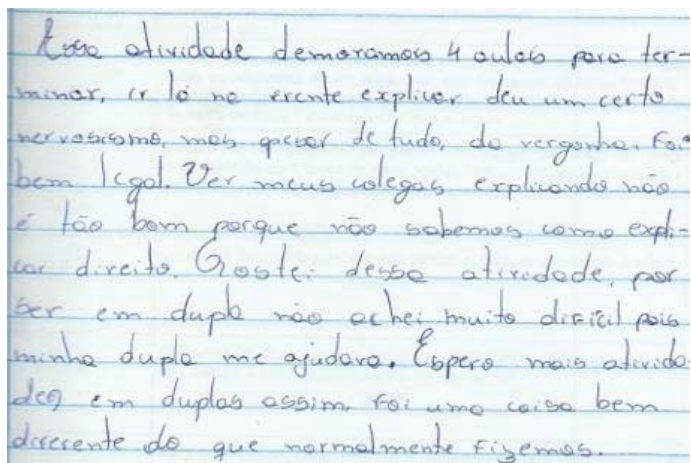 Essa atividade demoramos 4 aulas para ter-
minar, ir lá na frente explicar deu um certo
nervosismo, mas apesar de tudo, da vergonha, foi
bem legal. Ver meus colegas explicando não
é tão bom porque não sabemos como expli-
car direito. Gostei dessa atividade, por
ser em dupla não achei muito difícil pois
minha dupla me ajudava. Espero mais ativida-
des em duplas assim, foi uma coisa bem
diferente do que normalmente fizemos.